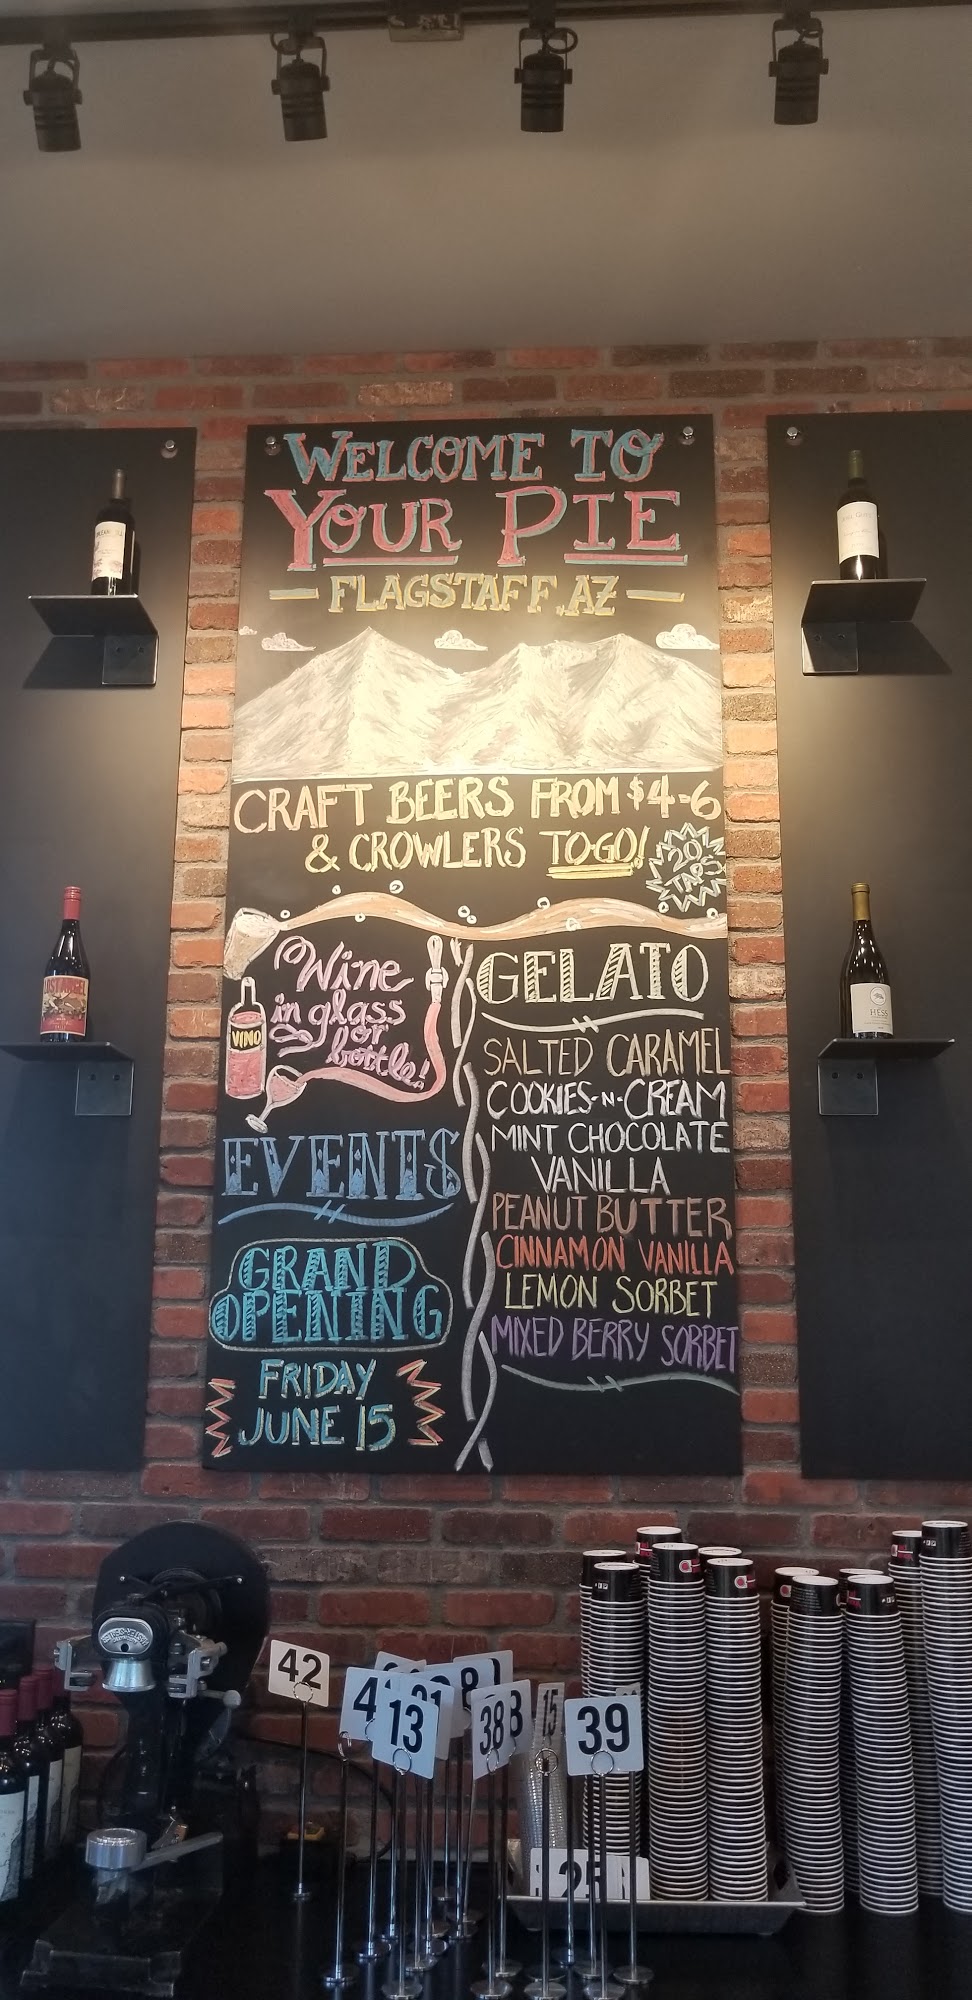 WELCOME TO
YOUR PIE
FLAGSTAFF, AZ
CRAFT BEERS FROM $4-6
& CROWLERS TO GO!
20
TAPS
Wine
in glass
or
bottle!
VINO
EVENTS
GRAND
OPENING
FRIDAY
JUNE 15
GELATO
SALTED CARAMEL
COOKIES-N-CREAM
MINT CHOCOLATE
VANILLA
PEANUT BUTTER
CINNAMON VANILLA
LEMON SORBET
MIXED BERRY SORBET
LOST ANGEL
HESS
42
4
13
38
15
39
25